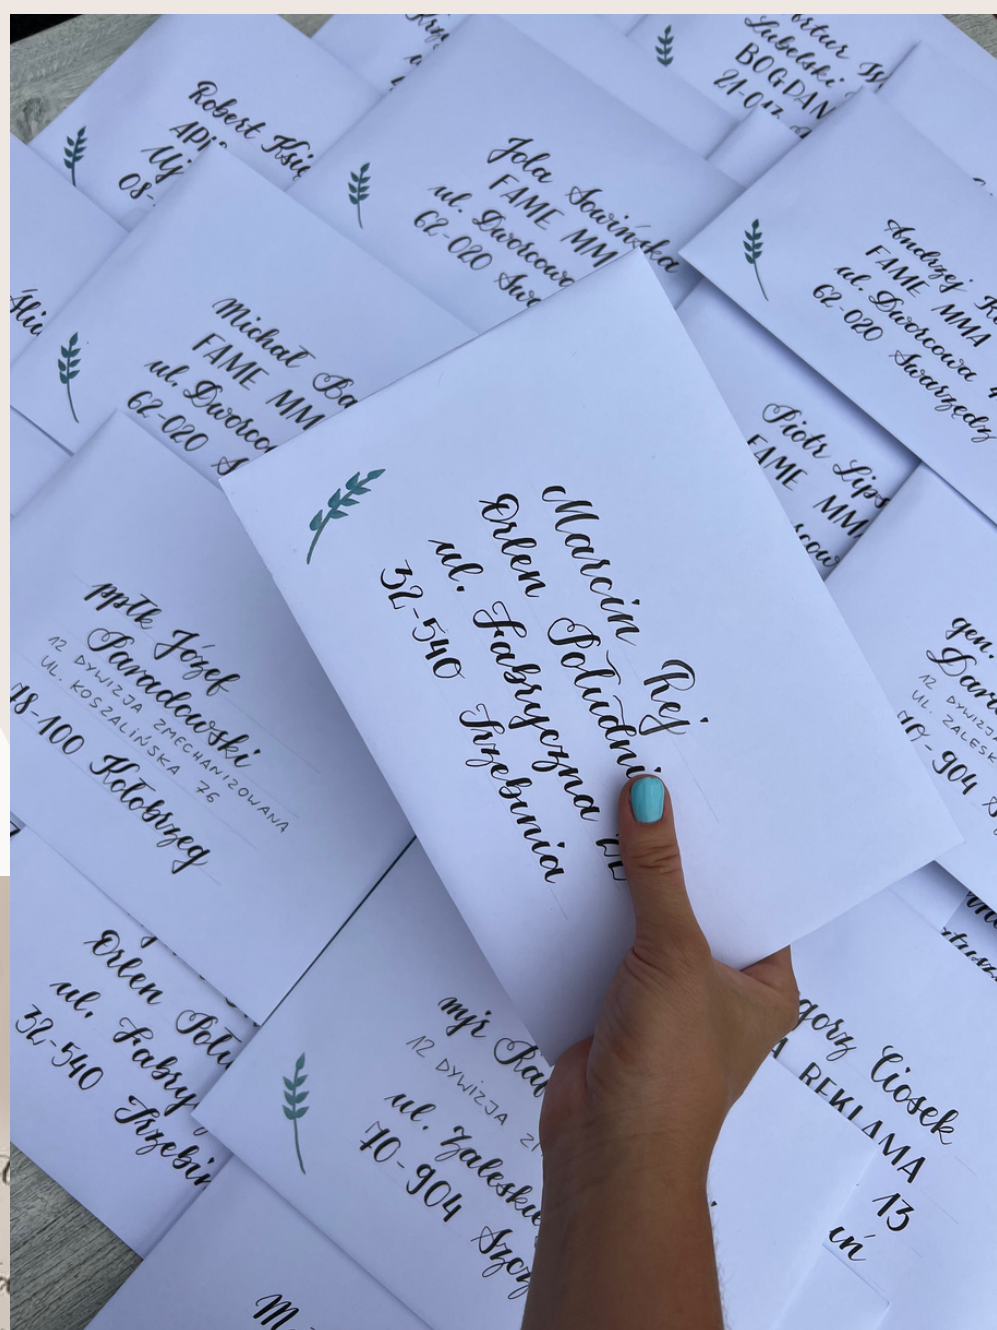 Robert
08-
Jola Sowińska
FAME MM
ul. Dworcowa
62-020
Lubelski
BOGDAN
Andrzej
FAME MMA
ul. Dworcowa
62-020 Swarzędz
Michał
FAME MM
ul. Dworcow
62-020 S
Piotr Lips
FAME MMA
Marcin Rej
Orlen Południ
ul. Fabryczna
32-540 Trzebinia
ppłk Józef
Paradowski
12 DYWIZJA ZMECHANIZOWANA
UL. KOSZALIŃSKA 76
78-100 Kołobrzeg
gen.
12 DYWIZJ
UL. ZALESK
70-904
Orlen Połu
ul. Fabry
32-540 Trzebin
mjr Raf
12 DYWIZJA
ul. Zaleskie
70-904 Szcz
gorz Ciosek
A REKLAMA
13
uń
M